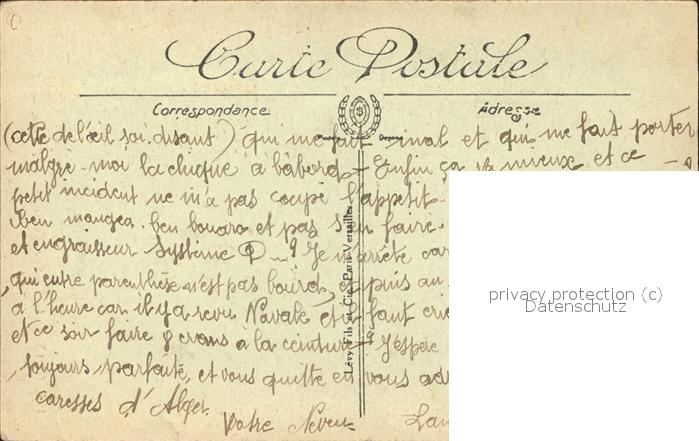 Carte Postale
Correspondance
Adresse
(cette de l'œil soi-disant) qui me fait mal et qui me fait porter
malgré-moi la chique à bâbord - Enfin ça va mieux et ce
petit incident ne m'a pas coupé l'appetit
ben manger. ben et pas s'en faire
et engraisseur système D Je m'arrête car
qui entre parenthèse n'est pas et puis au
à l'heure car il y a revu Navale et faut
et ce soir faire 8 crans à la ceinture - J'espère
toujours parfaite, et vous quitte en vous
caresses d'Alger
Votre Neveu
Lévy Fils et Cie, Paris-Versailles
privacy protection (c)
Datenschutz